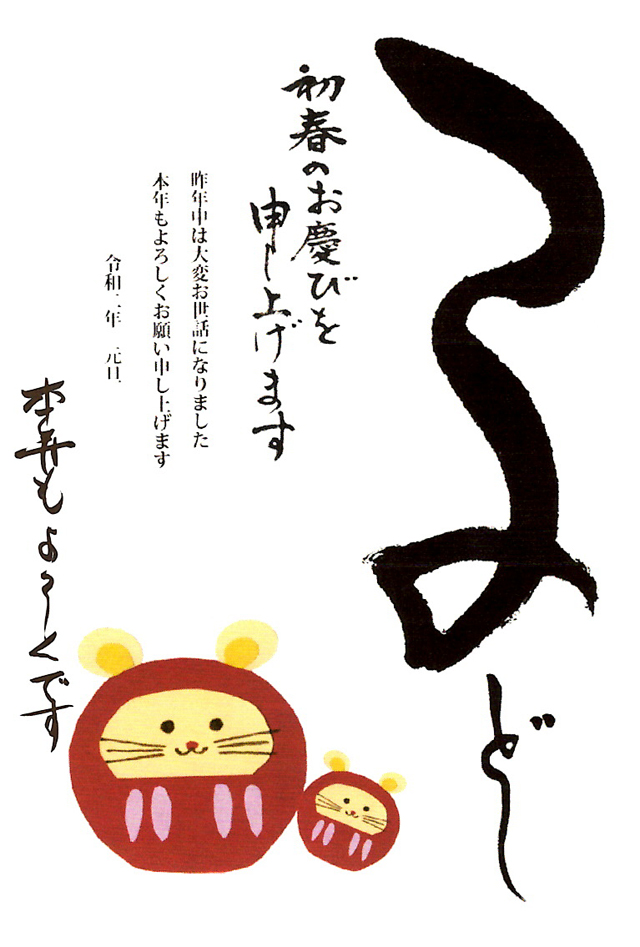 子どし
初春のお慶びを
申し上げます
昨年中は大変お世話になりました
本年もよろしくお願い申し上げます
令和二年　元旦
本年もよろしくです